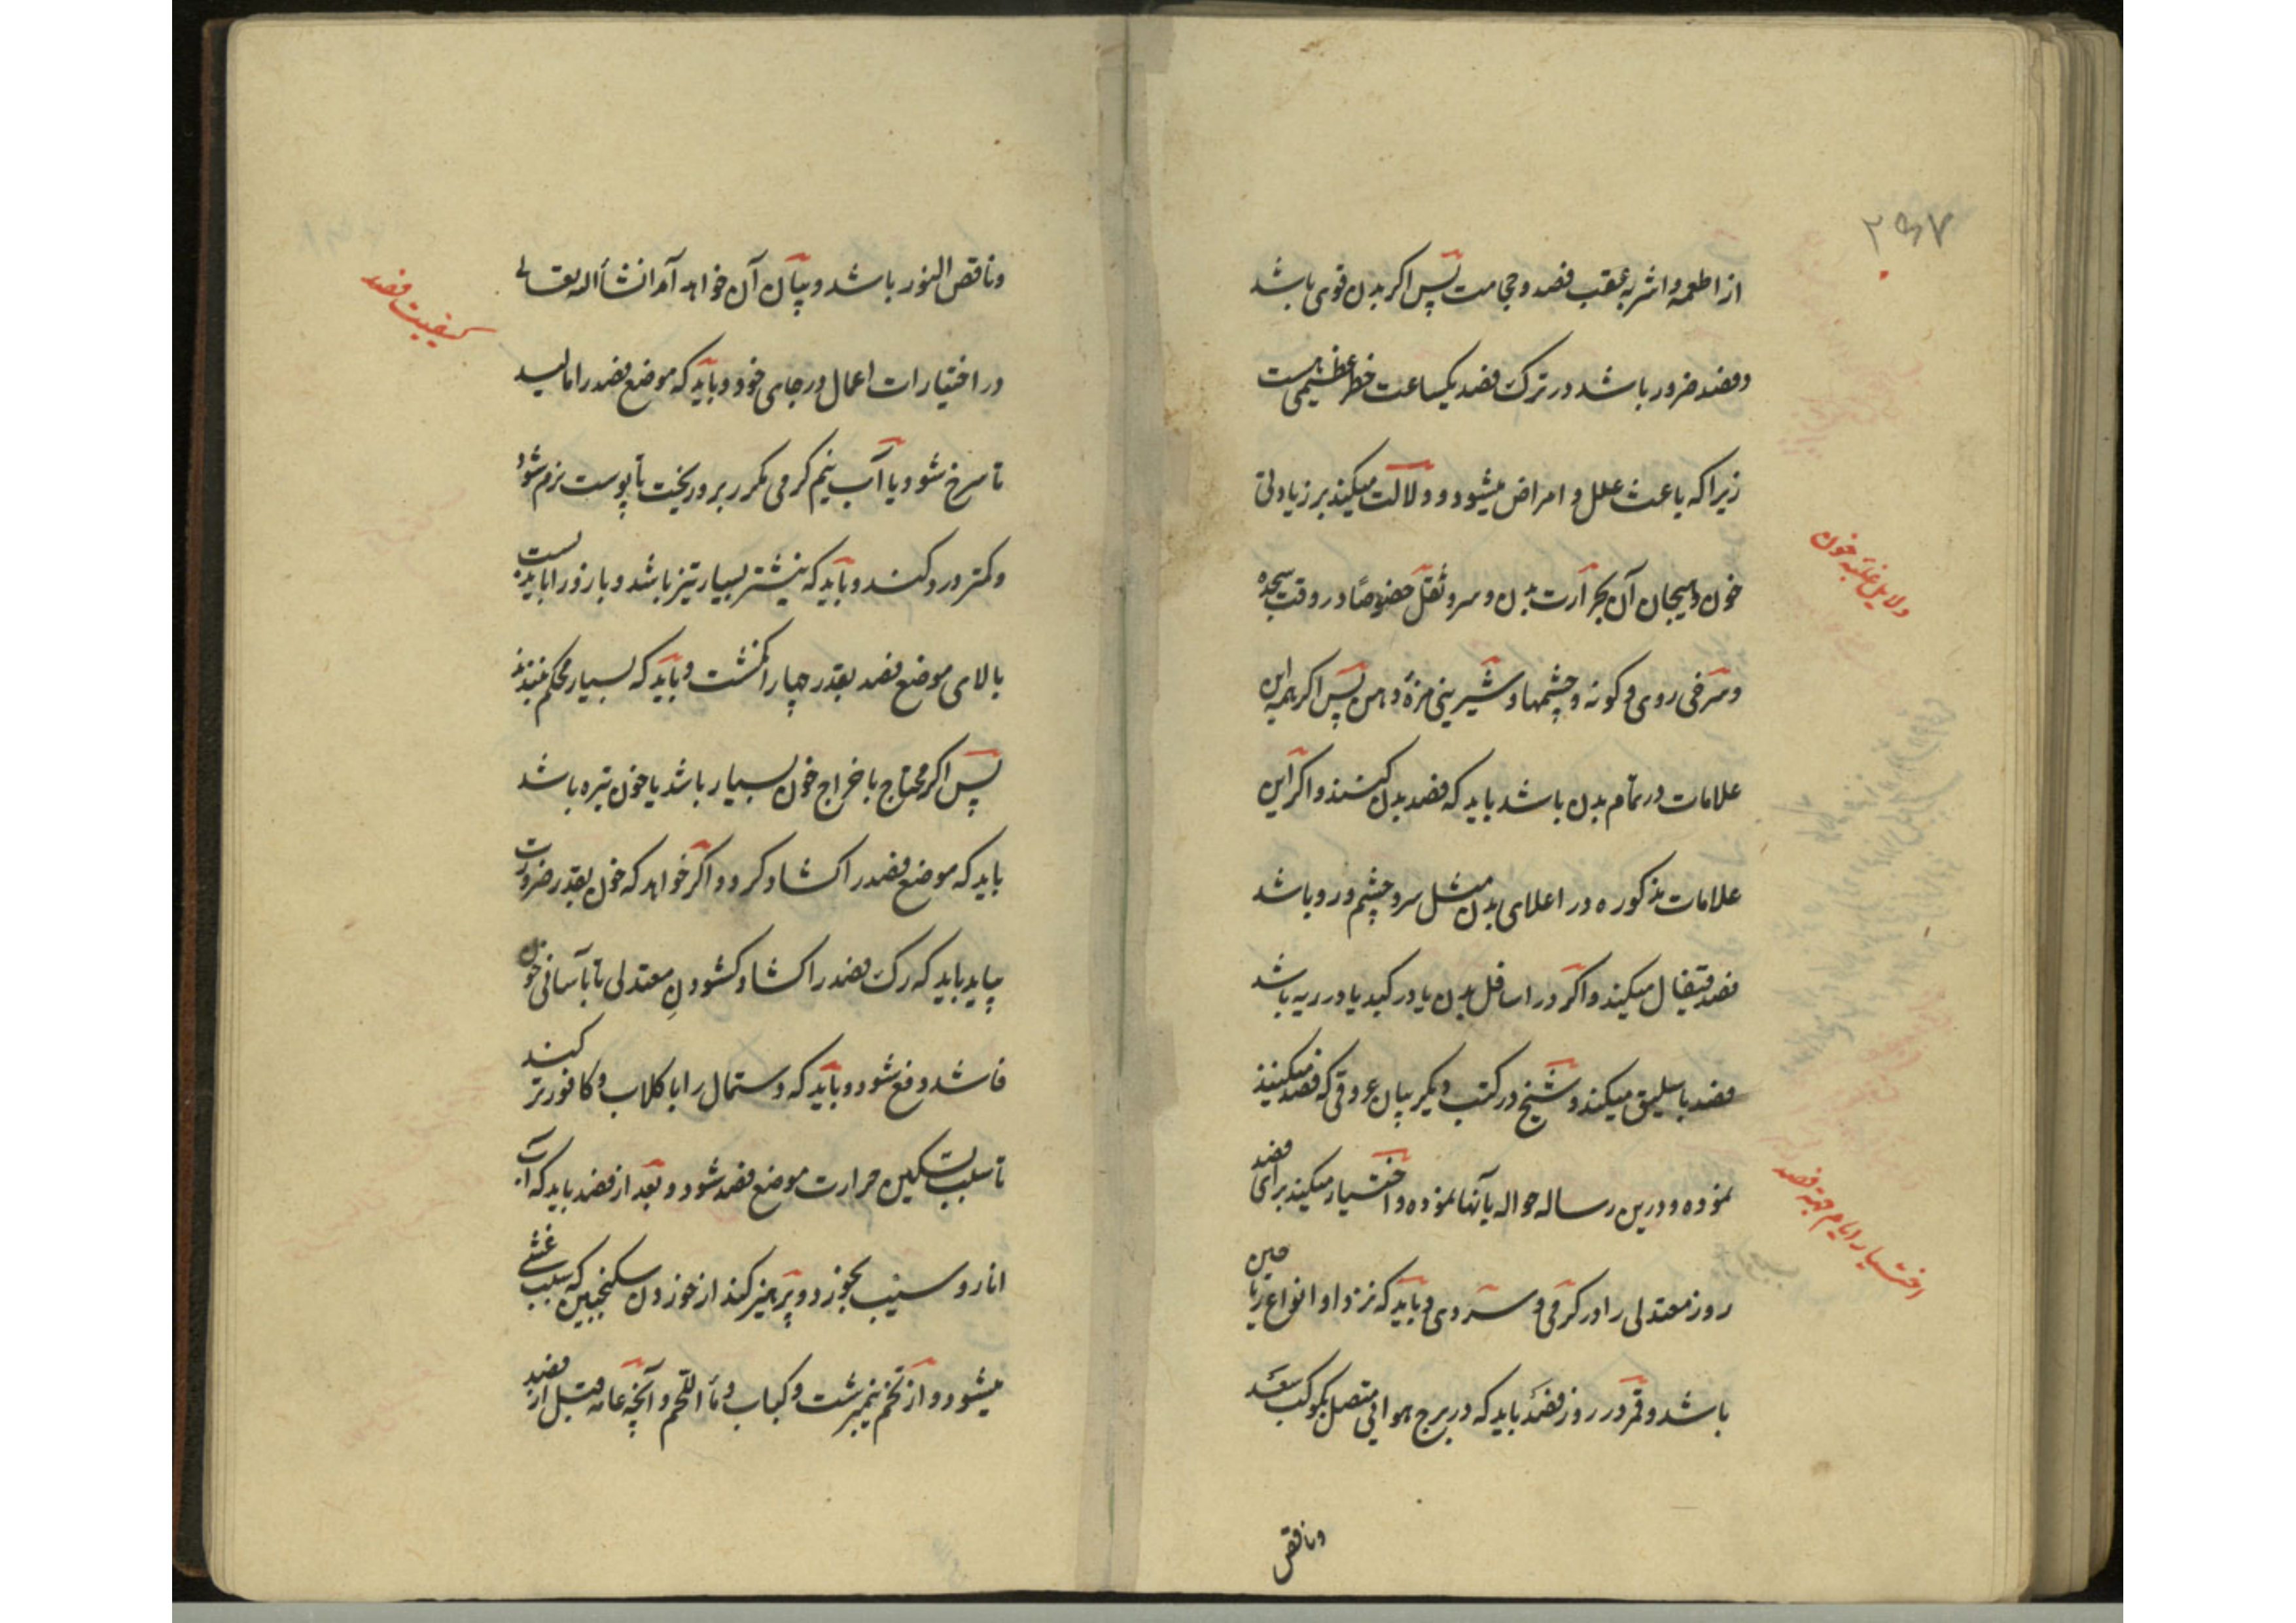 ۲۵۷
از اطعمه و اشربه عقب فصد و حجامت پس اکر بدن قوی باشد
و فصد ضرور باشد در ترک فصد یکساعت خطر عظیمی هست
زیرا که باعث علل و امراض میشود و دلالت میکند بر زیادتی
دلایل غلبه خون
خون و هیجان آن بحرارت بدن و سر و ثقل خصوصًا در وقت سجده
و سرخی روی و کونه و چشمها و شیرینی مزهٔ دهن پس اکر همه این
علامات در تمام بدن باشد باید که فصد بدل کنند و اکر این
علامات مذکوره در اعلای بدن مثل سر و چشم و رو باشد
فصد قیفال میکنند و اکر در اسافل بدن یا در کبد یا در ریه باشد
فصد باسلیق میکنند و شیخ در کتب دیکر بیان عروقی که فصد میکنند
نموده و درین رساله حواله بآنها نموده و اختیار میکنند برای فصد
اختیار ایام جهة فصد
روز معتدلی را در کرمی و سردی و باید که نزد او انواع ریاحین
باشد و قمر در روز فصد باید که در برج هوائی متصل بکوکب سعد
و ناقص
و ناقص النور باشد و بیان آن خواهد آمد انشأالله تعالی
کیفیت فصد
در اختیارات اعمال در جای خود و باید که موضع فصد را مالید
تا سرخ شود یا آب نیم کرمی مکرر برو ریخت تا پوست نرم شود
و کمتر درد کند و باید که نیشتر بسیار تیز باشد و بازو را باید بست
بالای موضع فصد بقدر چهار انکشت و باید که بسیار محکم نبندند
پس اکر محتاج باخراج خون بسیار باشد یا خون تیره باشد
باید که موضع فصد را کشاد کرد و اکر خواهد که خون بقدر ضرورت
بیاید باید که رک فصد را کشاد کشودن معتدلی تا بآسانی خون
فاسد دفع شود و باید که دستمال را با کلاب و کافور تر کنند
تا سبب تسکین حرارت موضع فصد شود و بعد از فصد باید که آب
انار و سیب بخورد و پرهیز کند از خوردن سکنجبین که سبب غشی
میشود و از تخم نیمبرشت و کباب و مأ اللحم و آنچه عامه قبل از فصد